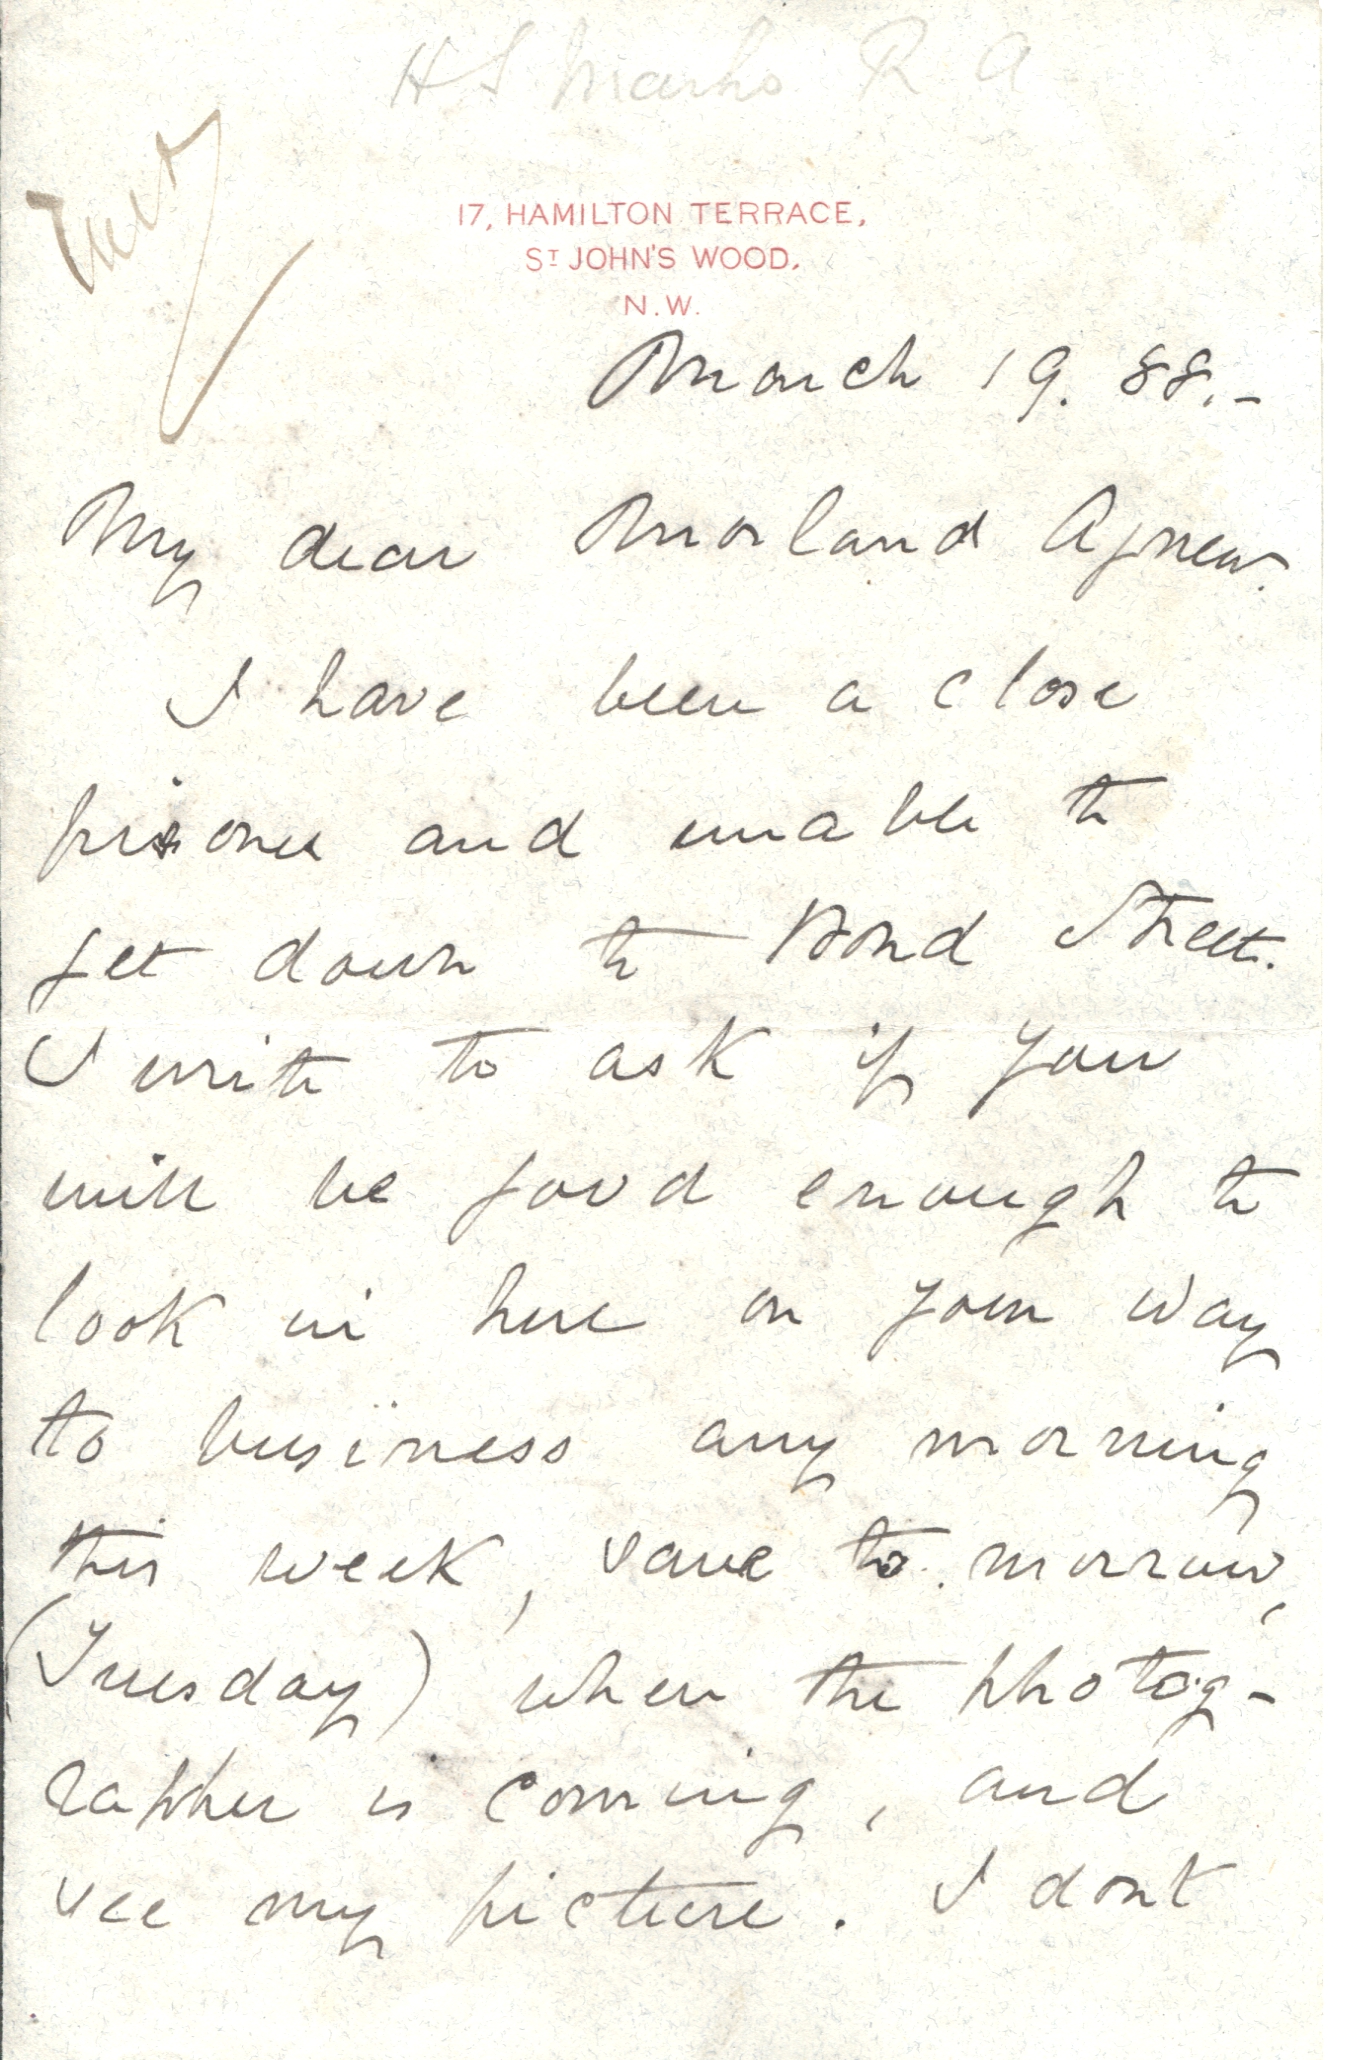 H S Marks R A
17, HAMILTON TERRACE,
ST JOHN'S WOOD,
N.W.
March 19. 88.-
My dear Morland Agnew.
I have been a close
prisoner and unable to
get down to Bond Street.
I write to ask if you
will be good enough to
look in here on your way
to business any morning
this week, save to.morrow,
(Tuesday) when the photog-
rapher is coming, and
see my picture. I dont